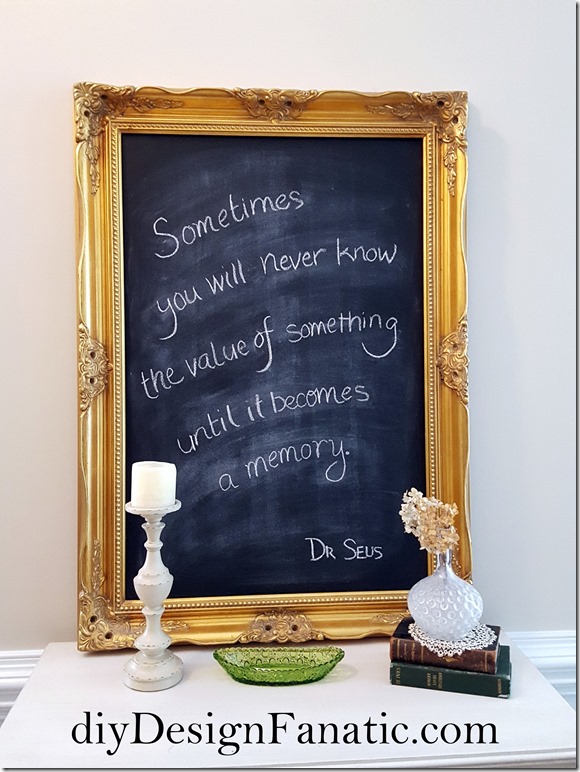 Sometimes
you will never know
the value of something
until it becomes
a memory.
DR SEUS
diyDesignFanatic.com